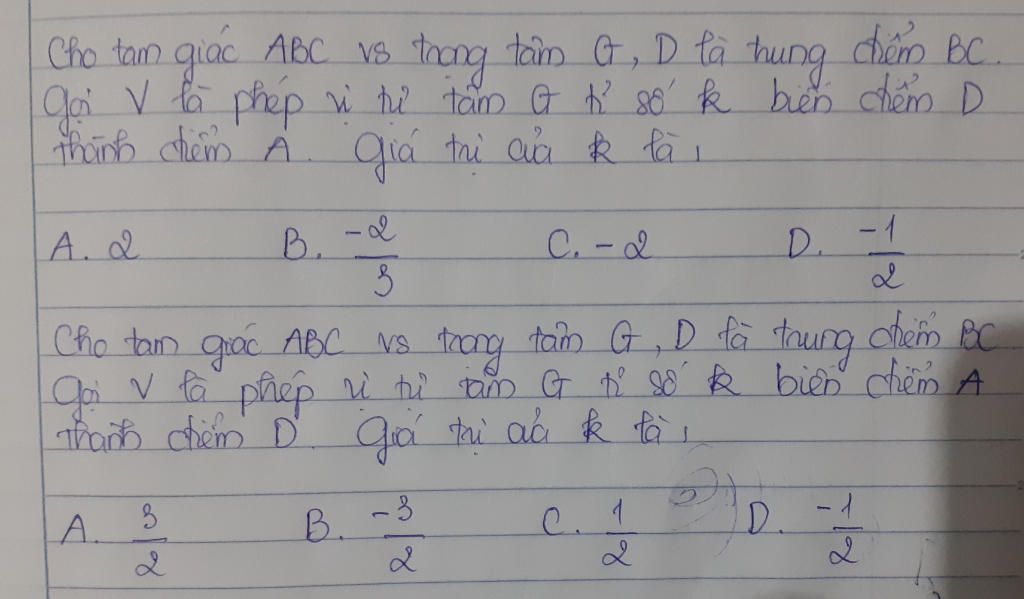 Cho tam giác ABC vs trọng tâm G, D là trung điểm BC.
Gọi V là phép vị tự tâm G tỉ số k biến điểm D
thành điểm A. Giá trị của k là,
A. 2 B. -2/3 C. -2 D. -1/2
Cho tam giác ABC vs trọng tâm G, D là trung điểm BC
Gọi V là phép vị tự tâm G tỉ số k biến điểm A
thành điểm D. Giá trị của k là,
A. 3/2 B. -3/2 C. 1/2 D. -1/2